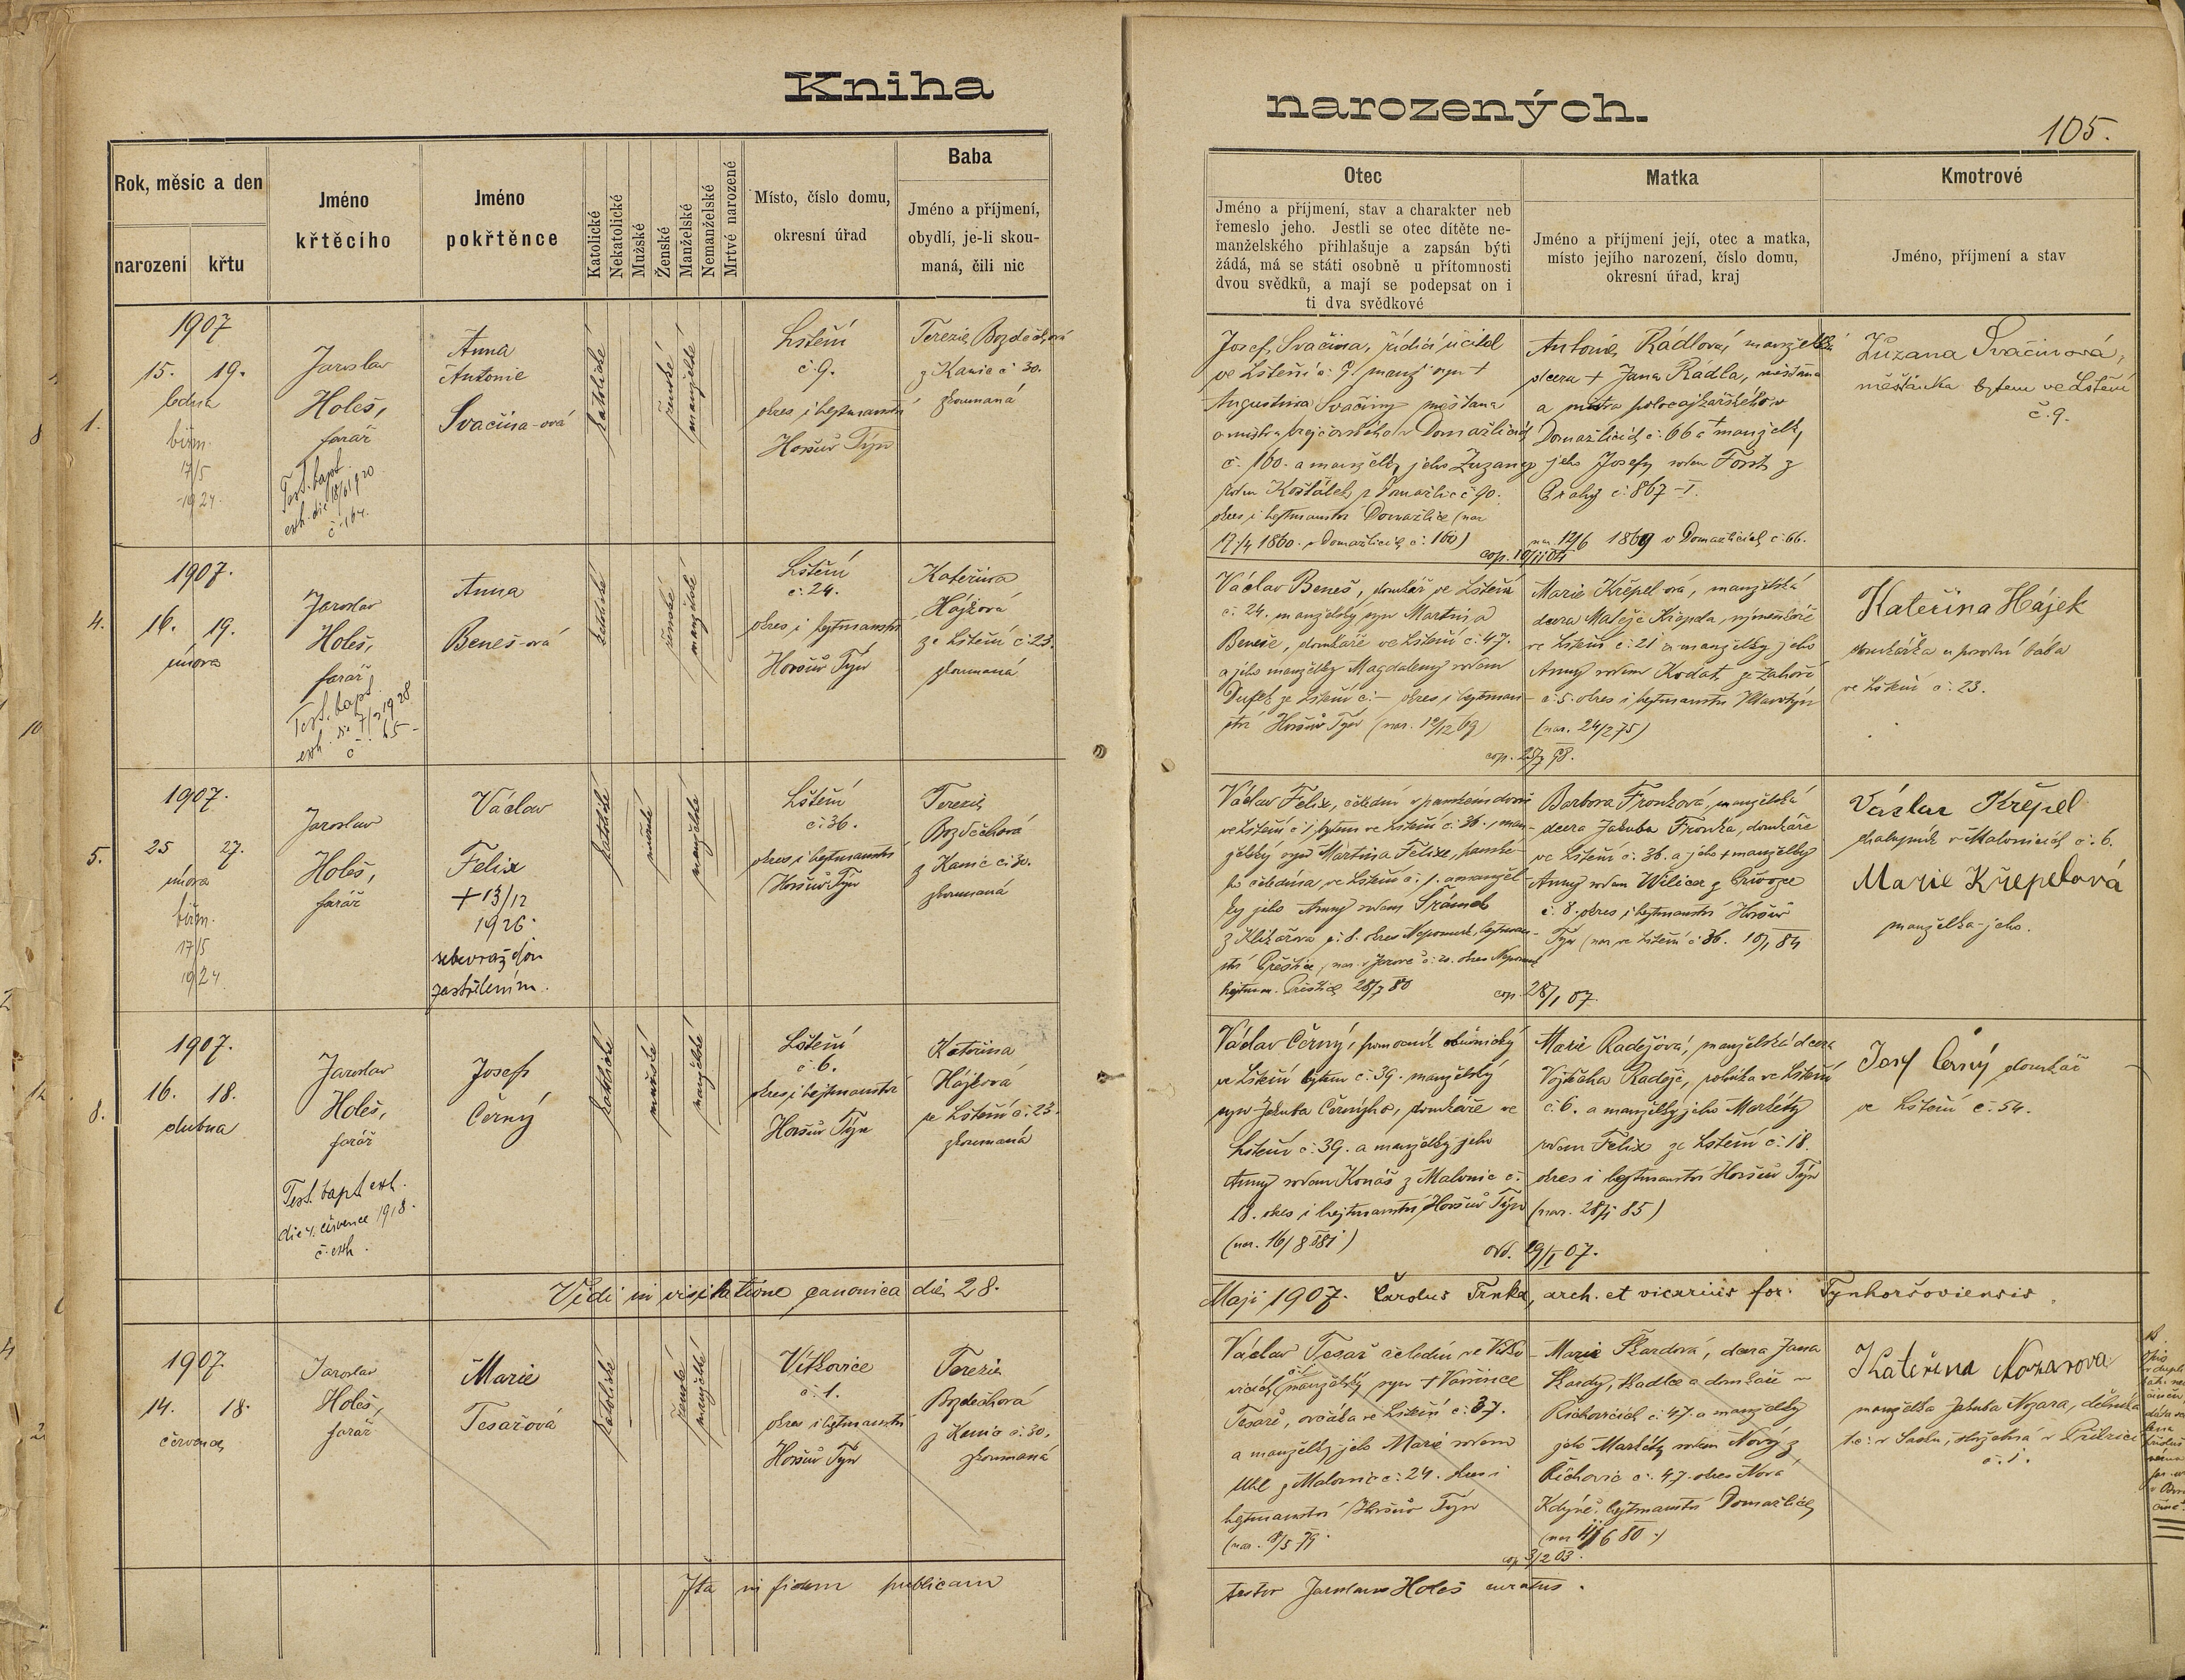 Kniha
narozených.
105.
Rok, měsíc a den
narození
křtu
Jméno
křtěcího
Jméno
pokřtěnce
Katolické
Nekatolické
Mužské
Ženské
Manželské
Nemanželské
Mrtvé narozené
Místo, číslo domu,
okresní úřad
Baba
Jméno a příjmení,
obydlí, je-li skou-
maná, čili nic
Otec
Jméno a příjmení, stav a charakter neb
řemeslo jeho. Jestli se otec dítěte ne-
manželského přihlašuje a zapsán býti
žádá, má se státi osobně u přítomnosti
dvou svědků, a mají se podepsat on i
ti dva svědkové
Matka
Jméno a příjmení její, otec a matka,
místo jejího narození, číslo domu,
okresní úřad, kraj
Kmotrové
Jméno, příjmení a stav
1.
1907
15. 19.
ledna
biřm.
17/5
1924.
Jaroslav
Holeš,
farář
Test. bapt.
Anna
Antonie
Svačina-ová
katolické
ženské
manželské
Lštění
č. 9.
okres i hejtmanství
Horšův Týn
Terezie Bozděchová
z Kanic č 30.
zkoumaná
Josef Svačina, řídící učitel
ve Lštění č. 9. manž. syn †
Augustina Svačiny měšťana
v Domažlicích
č. 160. a manželky jeho Zuzany
rodem Košťálek z Domažlic č 90.
okres i hejtmanství Domažlice (nar
17/4 1860. v Domažlicích č. 160)
Antonie Rádlová, manželská
dcera † Jana Rádla, měšťana
a mistra
Domažlicích č. 66 a manželky
jeho Josefy rodem Forst z
Prahy č. 867 - I.
nar. 12/6 1869 v Domažlicích č. 66.
Zuzana Svačinová,
měšťanka bytem ve Lštění
č. 9.
4.
1907.
16. 19.
února
Jaroslav
Holeš,
farář
Test. bapt.
Anna
Beneš-ová
katolické
ženské
manželské
Lštění
č. 24.
okres i hejtmanství
Horšův Týn
Kateřina
Hájková
ze Lštění č. 23.
zkoumaná
Václav Beneš, domkář ve Lštění
č. 24. manželský syn Martina
Beneše, domkáře ve Lštění č. 47.
a jeho manželky Magdaleny rodem
Dufek ze Lštění č. – okres i hejtman-
ství Horšův Týn (nar. 12/12 69)
Marie Křepel-ová, manželská
dcera Matěje Křepela, výměnkáře
ve Lštění č. 21 a manželky jeho
Anny rodem Kodat ze Zahoř
č. 5. okres i hejtmanství Klatovy
(nar. 24/2 75)
Kateřina Hájek
domkářka a porodní bába
ve Lštění č. 23.
5.
1907.
25 27.
února
biřm.
17/5
1924.
Jaroslav
Holeš,
farář
Václav
Felix
† 13/12
1926.
sebevraždou
zastřelením.
katolické
mužské
manželské
Lštění
č. 36.
okres i hejtmanství
Horšův Týn
Terezie
Bozděchová
z Kanic č. 30.
zkoumaná
Václav Felix, čeledín v panském dvoře
ve Lštění č 1, bytem ve Lštění č. 36., man-
želský syn Martina Felixe, panské-
ho čeledína, ve Lštění č. 1. a manžel-
ky jeho Anny rodem Šrámek
Barbora Fronková, manželská
dcera Jakuba Fronka, domkáře
ve Lštění č. 36. a jeho † manželky
Anny rodem
č. 8. okres i hejtmanství Horšův
Týn (nar. ve Lštění č 36. 10/1 84
cop. 28/1 07.
Václav Křepel
chalupník v Malonicích č. 6.
Marie Křepelová
manželka jeho.
8.
1907.
16. 18.
dubna
Jaroslav
Holeš,
farář
Test. bapt. exh.
die 4. července 1918.
č. exh.
Josef
Černý
katolické
mužské
manželské
Lštění
č. 6.
okres i hejtmanství
Horšův Týn
Kateřina
Hájková
ze Lštění č. 23.
zkoumaná
Václav Černý, pomocník obuvnický
ve Lštění bytem č. 39. manželský
syn Jakuba Černýho, domkáře ve
Lštění č. 39. a manželky jeho
Anny rodem Konáš z Malonic č.
18. okres i hejtmanství Horšův Týn
(nar. 16/8 881)
Marie Radějová, manželská dcera
Vojtěcha Raděje, rolníka ve Lštění
č. 6. a manželky jeho Markéty
rodem Felix ze Lštění č. 18.
okres i hejtmanství Horšův Týn
(nar. 28/1 85)
Josef Černý domkář
ve Lštění č. 54.
Vidi in visitatione canonica die 28.
Maji 1907. Carolus Trnka, arch. et vicarius for. Tynhoršoviensis.
1907.
14. 18.
července
Jaroslav
Holeš,
farář
Marie
Tesařová
katolické
ženské
manželské
Vítkovice
č. 1.
okres i hejtmanství
Horšův Týn
Terezie
Bozděchová
z Kanic č. 30.
zkoumaná
Václav Tesař čeledín ve Vítko-
vicích manželský syn † Vavřince
Tesaře, ovčáka ve Lštění č. 37.
a manželky jeho Marie rodem
Uhl z Malonic č. 24. okres i
hejtmanství Horšův Týn
Marie Škardová, dcera Jana
Škardy, tkadlce a domkáře v
Říchovicích č. 47. a manželky
jeho Markéty rodem Nový z
Říchovic č. 47. okres Nová
Kdyně, hejtmanství Domažlice
cop. 3/2 03.
Kateřina Nozarova
manželka Jakuba Nozara, dělníka
č. 1.
Ita in fidem publicam
testor Jaroslav Holeš curatus.